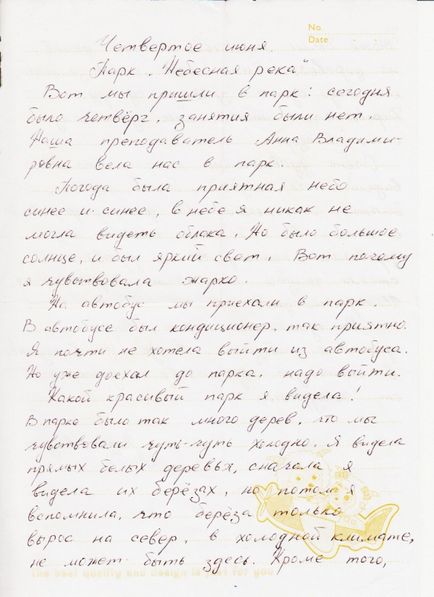 No.
Date
Четвертое июня.
Парк „Небесная река"
Вот мы пришли в парк: сегодня
было четверг, занятия были нет.
Наша преподаватель Анна Владими-
ровна вела нас в парк.
Погода была приятная небо
синее и синее, в небе я никак не
могла видеть облака. Но было большое
солнце, и был яркий свет. Вот почему
я чувствовала жарко.
На автобус мы приехали в парк.
В автобусе был кондиционер, так приятно.
Я почти не хотела выйти из автобуса.
Но уже доехал до парка, надо выйти.
Какой красивый парк я видела.
В парке было так много дерев, что мы
чувствовали чуть-чуть холодно. Я видела
прямых белых деревьх, сначала я
видела их берёзах, но потом я
вспомнила, что берёза только
вырос на север, в холодной климате,
не может быть здесь. Кроме того,
the best quality and design is just for you